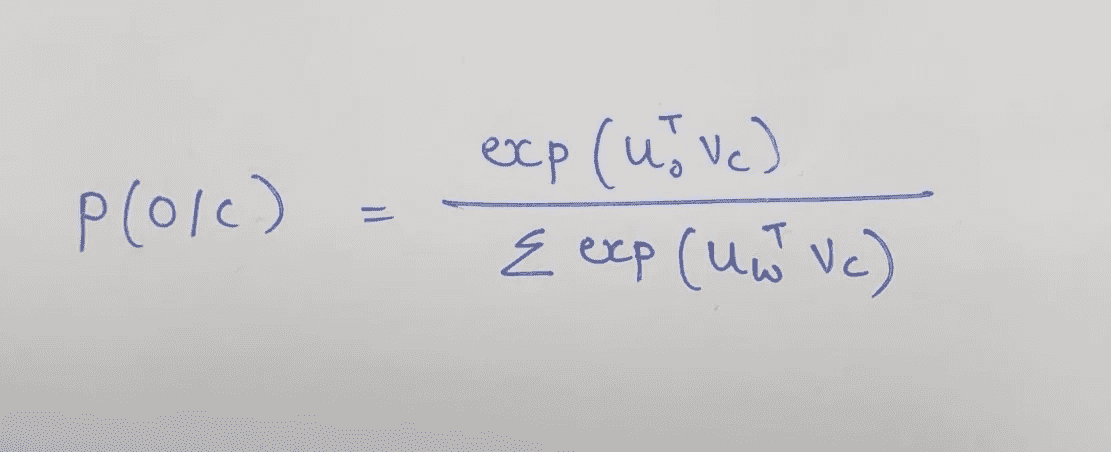 p(o/c) = exp(u_o^T v_c) / Σ exp(u_w^T v_c)